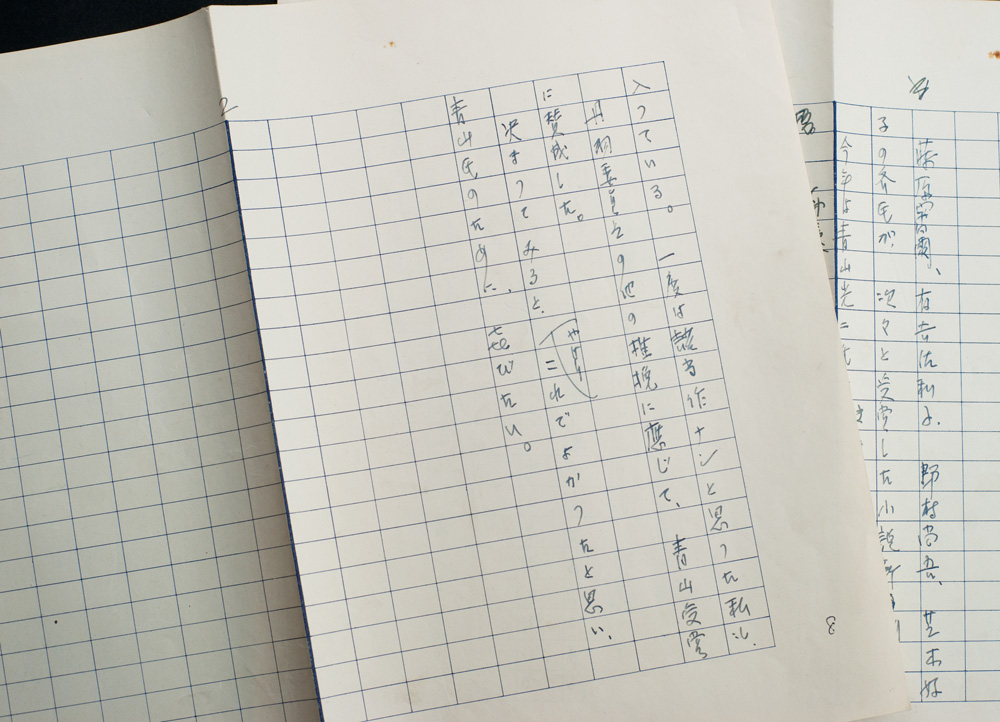 有吉佐和子、野村尚吾、芝木好
子の各氏が、次々と受賞した小説新
今年は青山光二
8
入つている。一度は該当作ナシと思つた私も、
丹羽委員その他の推挽に應じて、青山受賞
に賛成した。
やはり
決まつてみると、これでよかつたと思い、
青山氏のために、喜びたい。
2